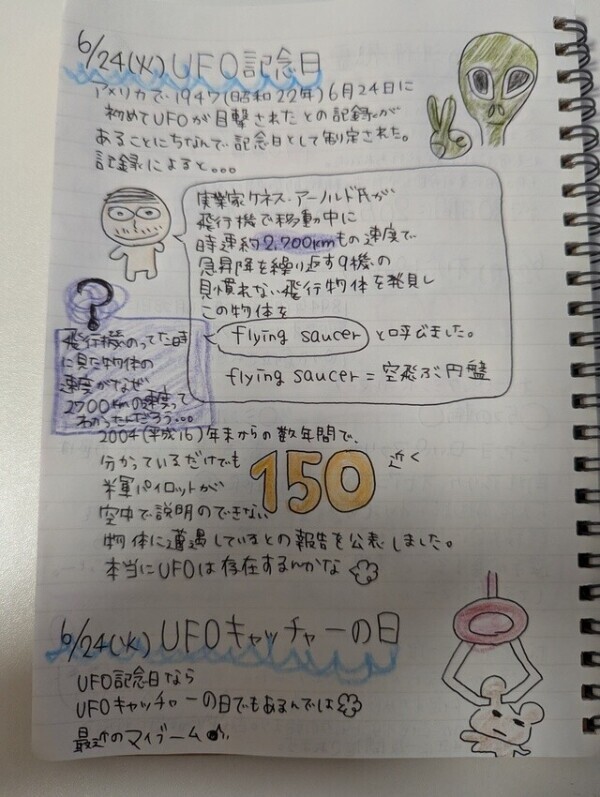 6/24(火)UFO記念日
アメリカで1947(昭和22年)6月24日に
初めてUFOが目撃されたとの記録が
あることにちなんで記念日として制定された。
記録によると...
実業家ケネス・アーノルド氏が
飛行機で移動中に
時速約2,700kmもの速度で
急昇降を繰り返す9機の
見慣れない飛行物体を発見し
この物体を
flying saucer と呼びました。
flying saucer = 空飛ぶ円盤
?
飛行機のってた時
に見た物体の
速度がなぜ
2700kmの速度って
わかったんだろう...
2004(平成16)年末からの数年間で、
分かっているだけでも 150 近く
米軍パイロットが
空中で説明のできない
物体に遭遇しているとの報告を公表しました。
本当にUFOは存在するんかな
6/24(火)UFOキャッチャーの日
UFO記念日なら
UFOキャッチャーの日でもあるんでは
最近のマイブーム